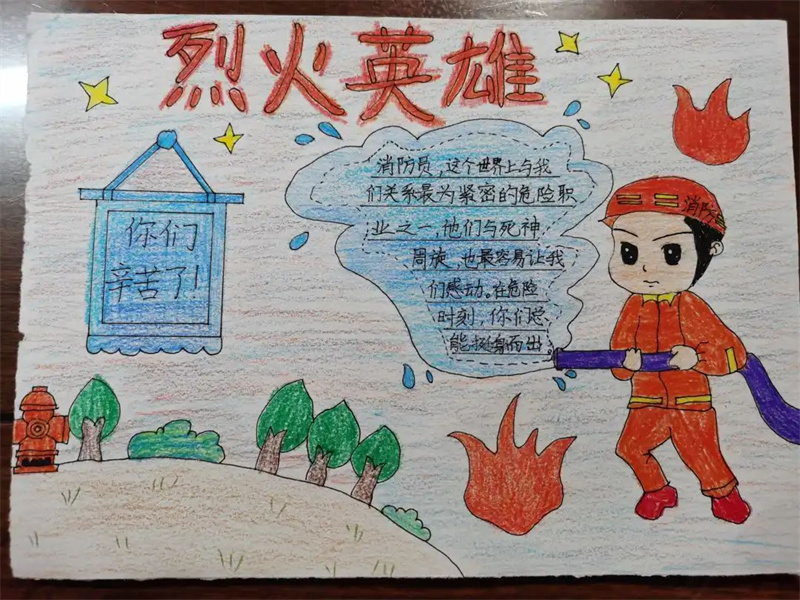 烈火英雄
你们
辛苦了!
消防员,这个世界上与我
们关系最为紧密的危险职
业之一,他们与死神
周旋,也最容易让我
们感动。在危险
时刻,你们总
能挺身而出。
消防